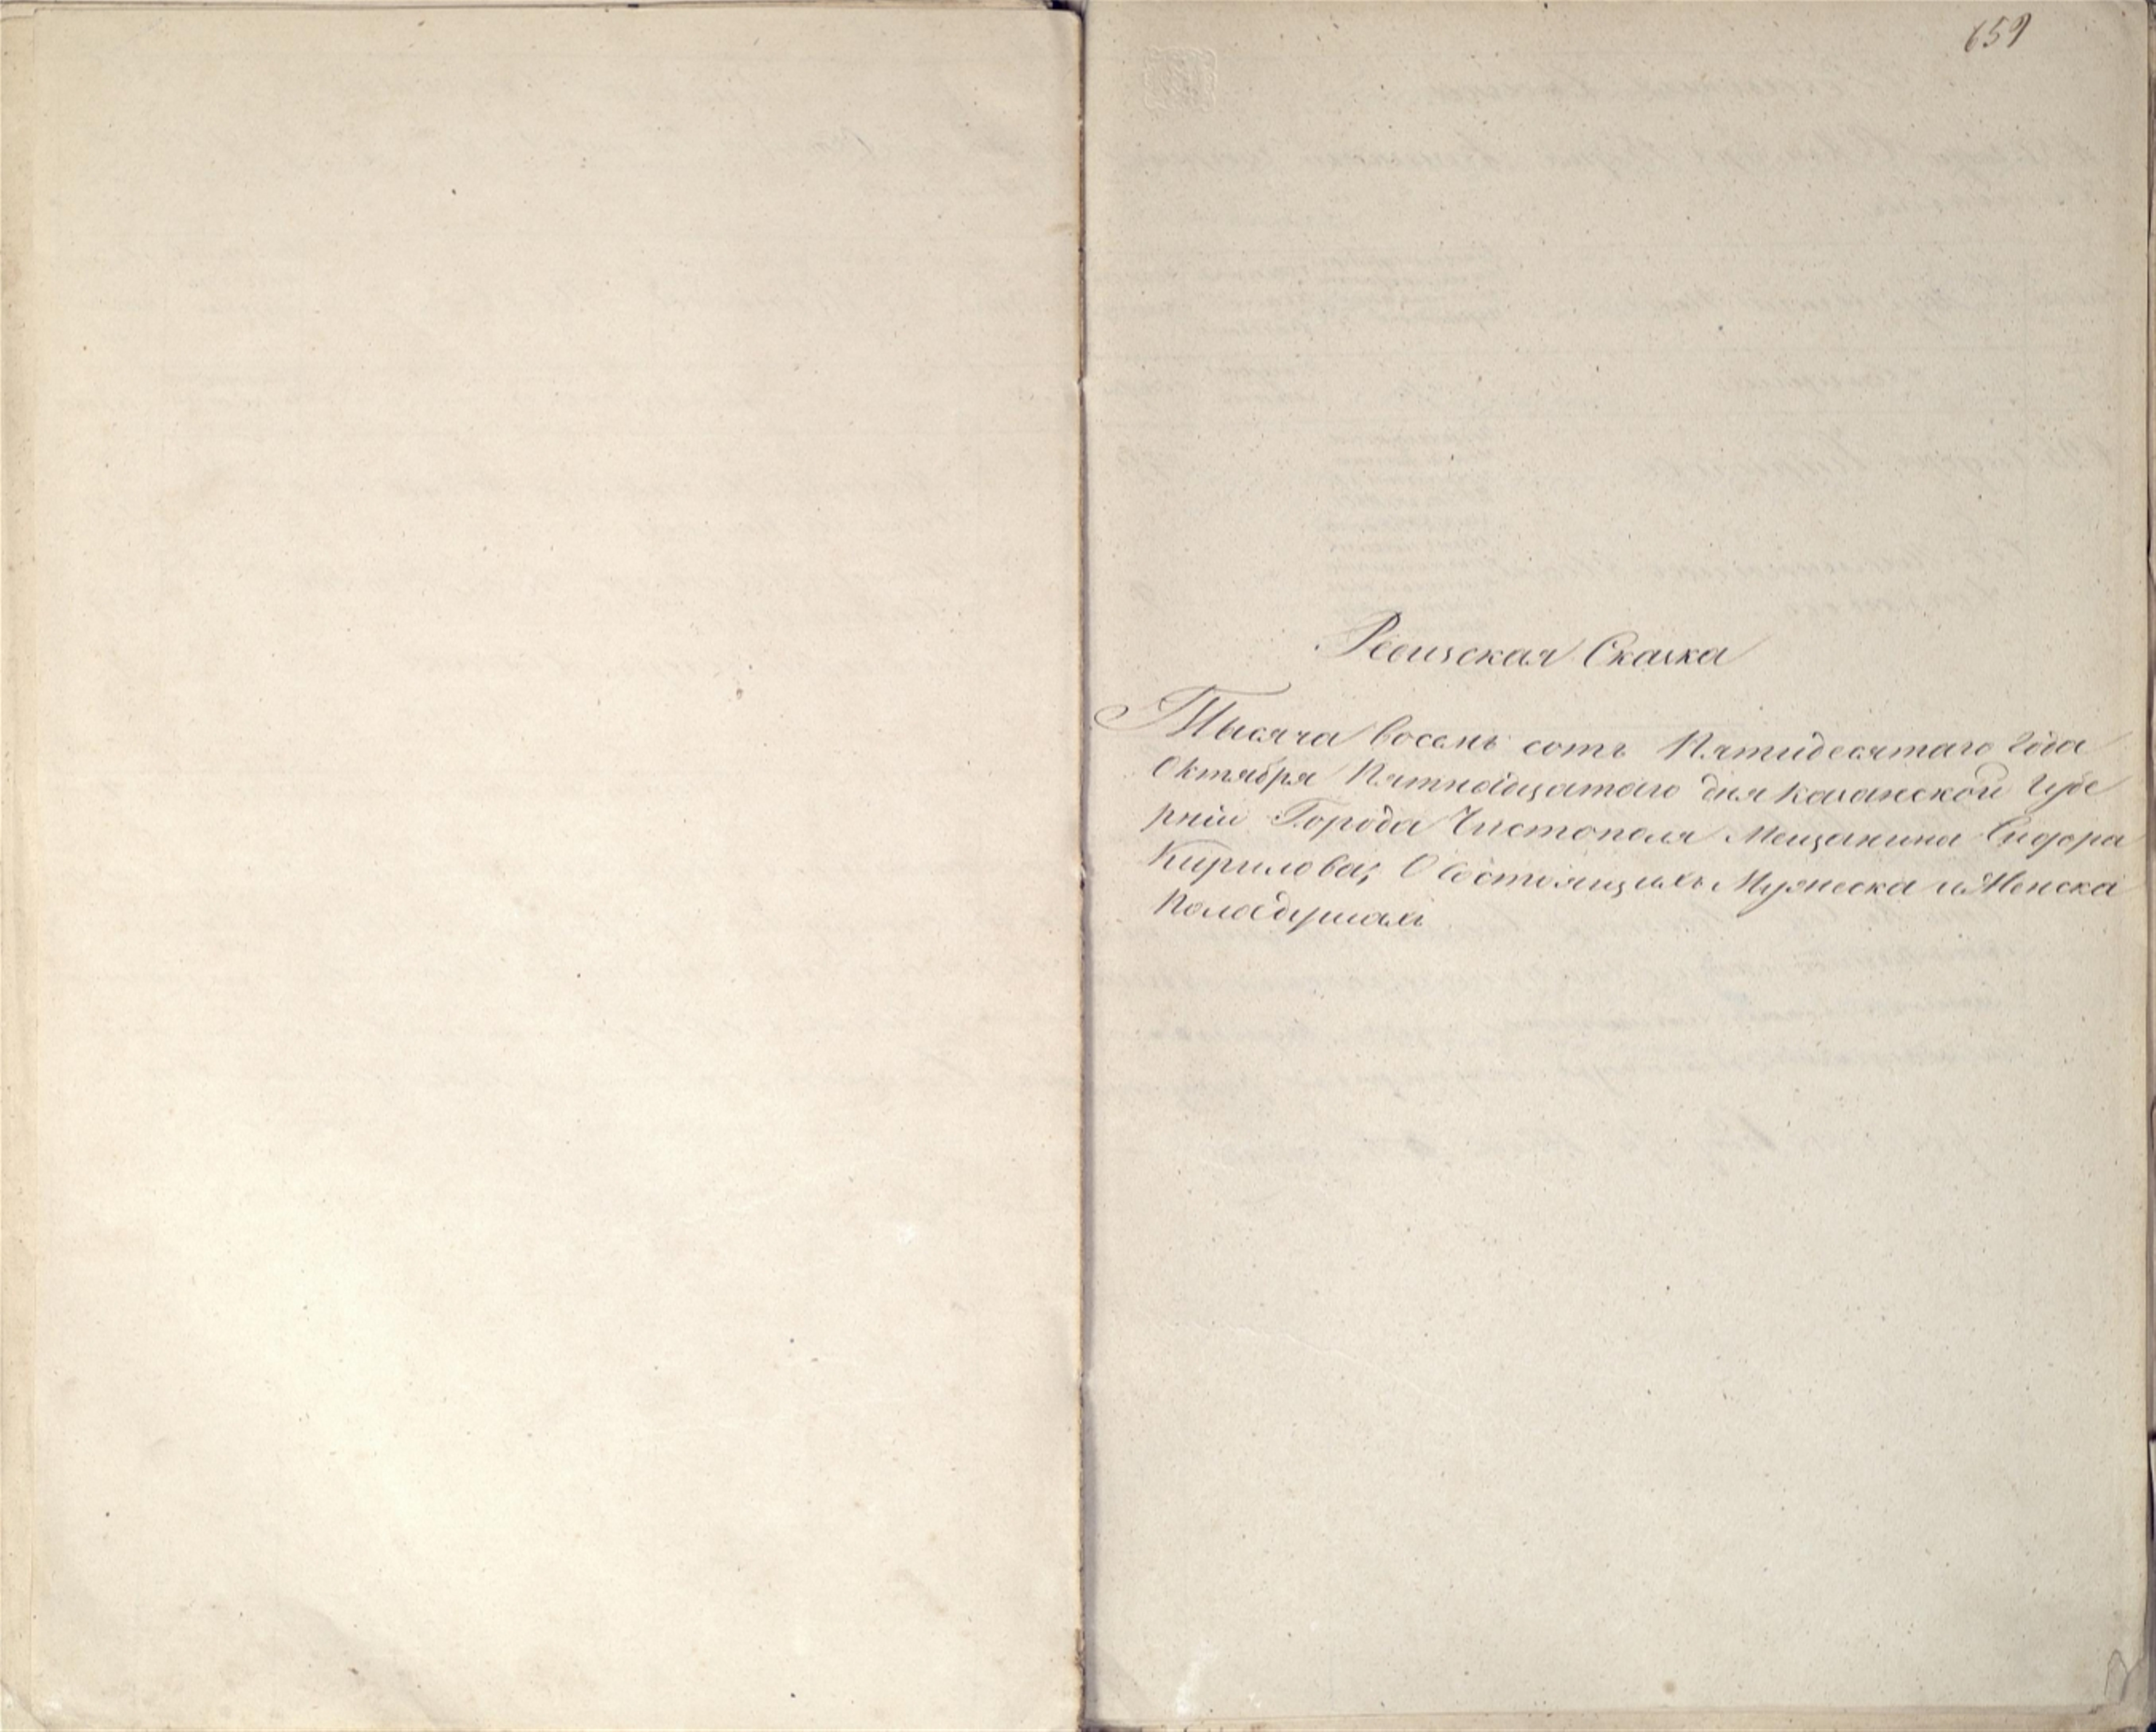 659
Ревизская Сказка
Тысяча восемь сотъ Пятидесятаго Года
Октября Пятнадцатаго дня казанской Губе
рніи Города Чистополя Мещанина Сидора
Кирилова; О Состоящихъ Мужеска и Женска
Пола душахъ